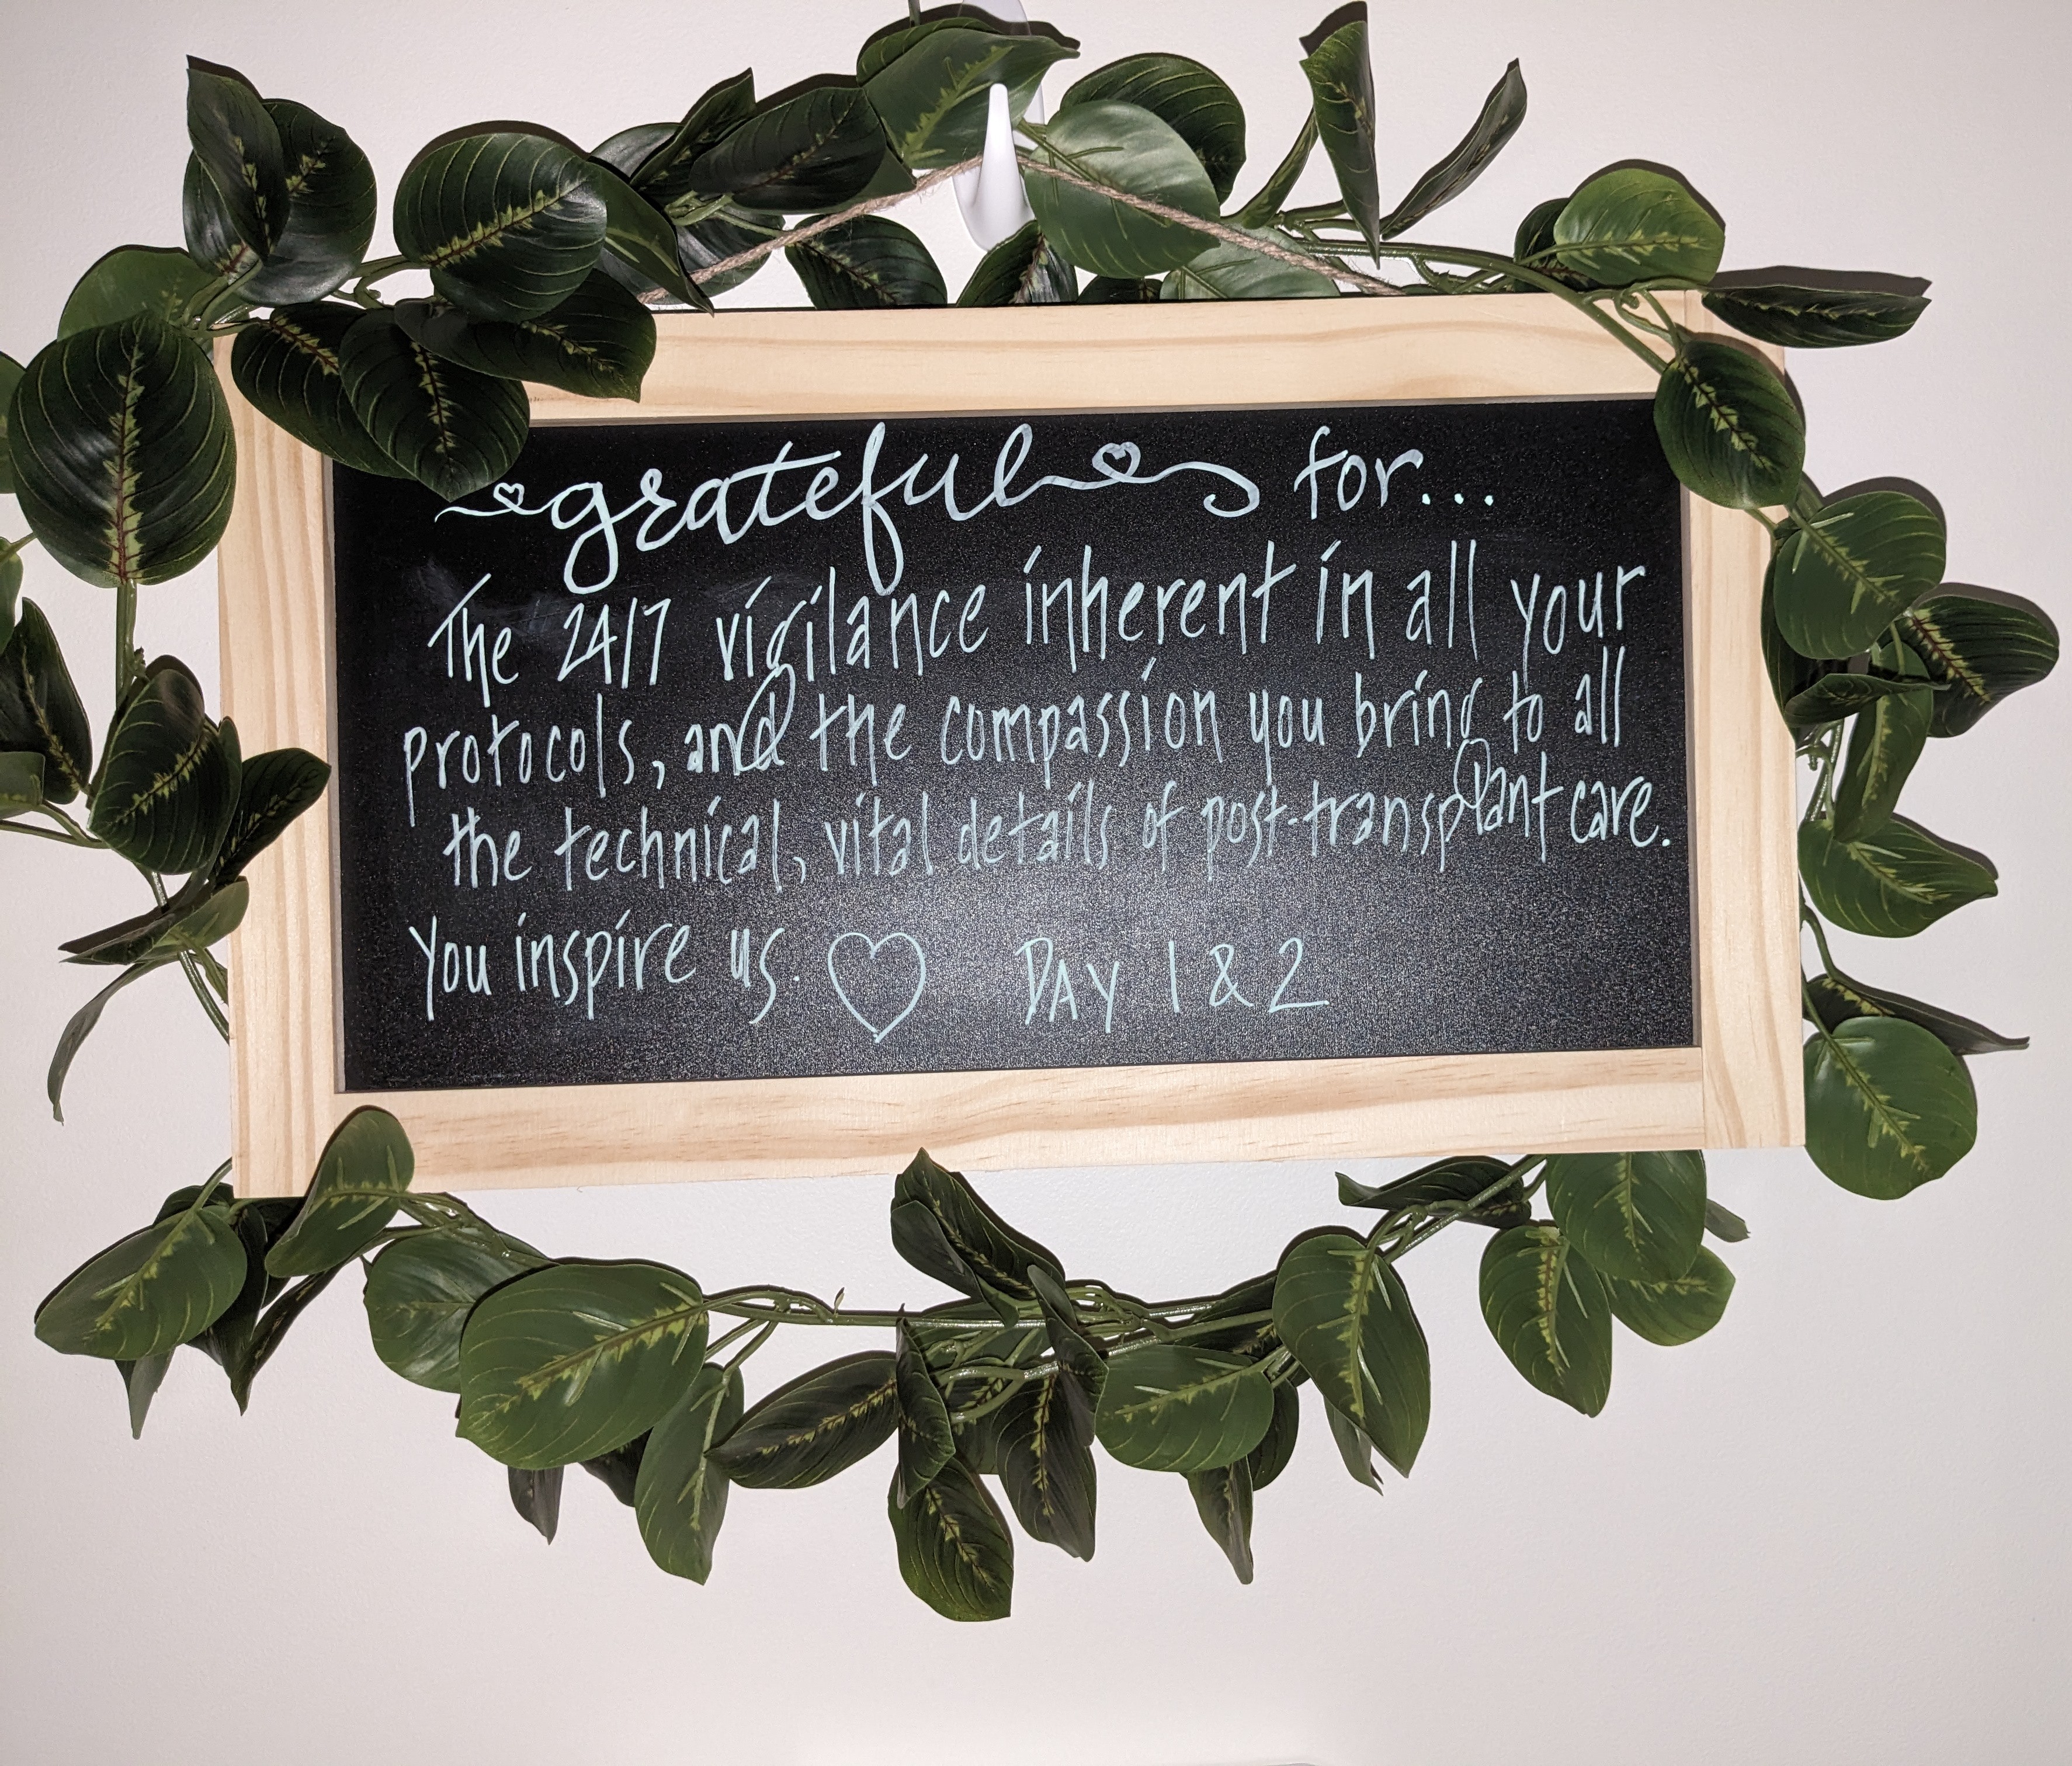 grateful for...
The 24/7 vigilance inherent in all your
protocols, and the compassion you bring to all
the technical, vital details of post-transplant care.
You inspire us. ♡ DAY 1 & 2